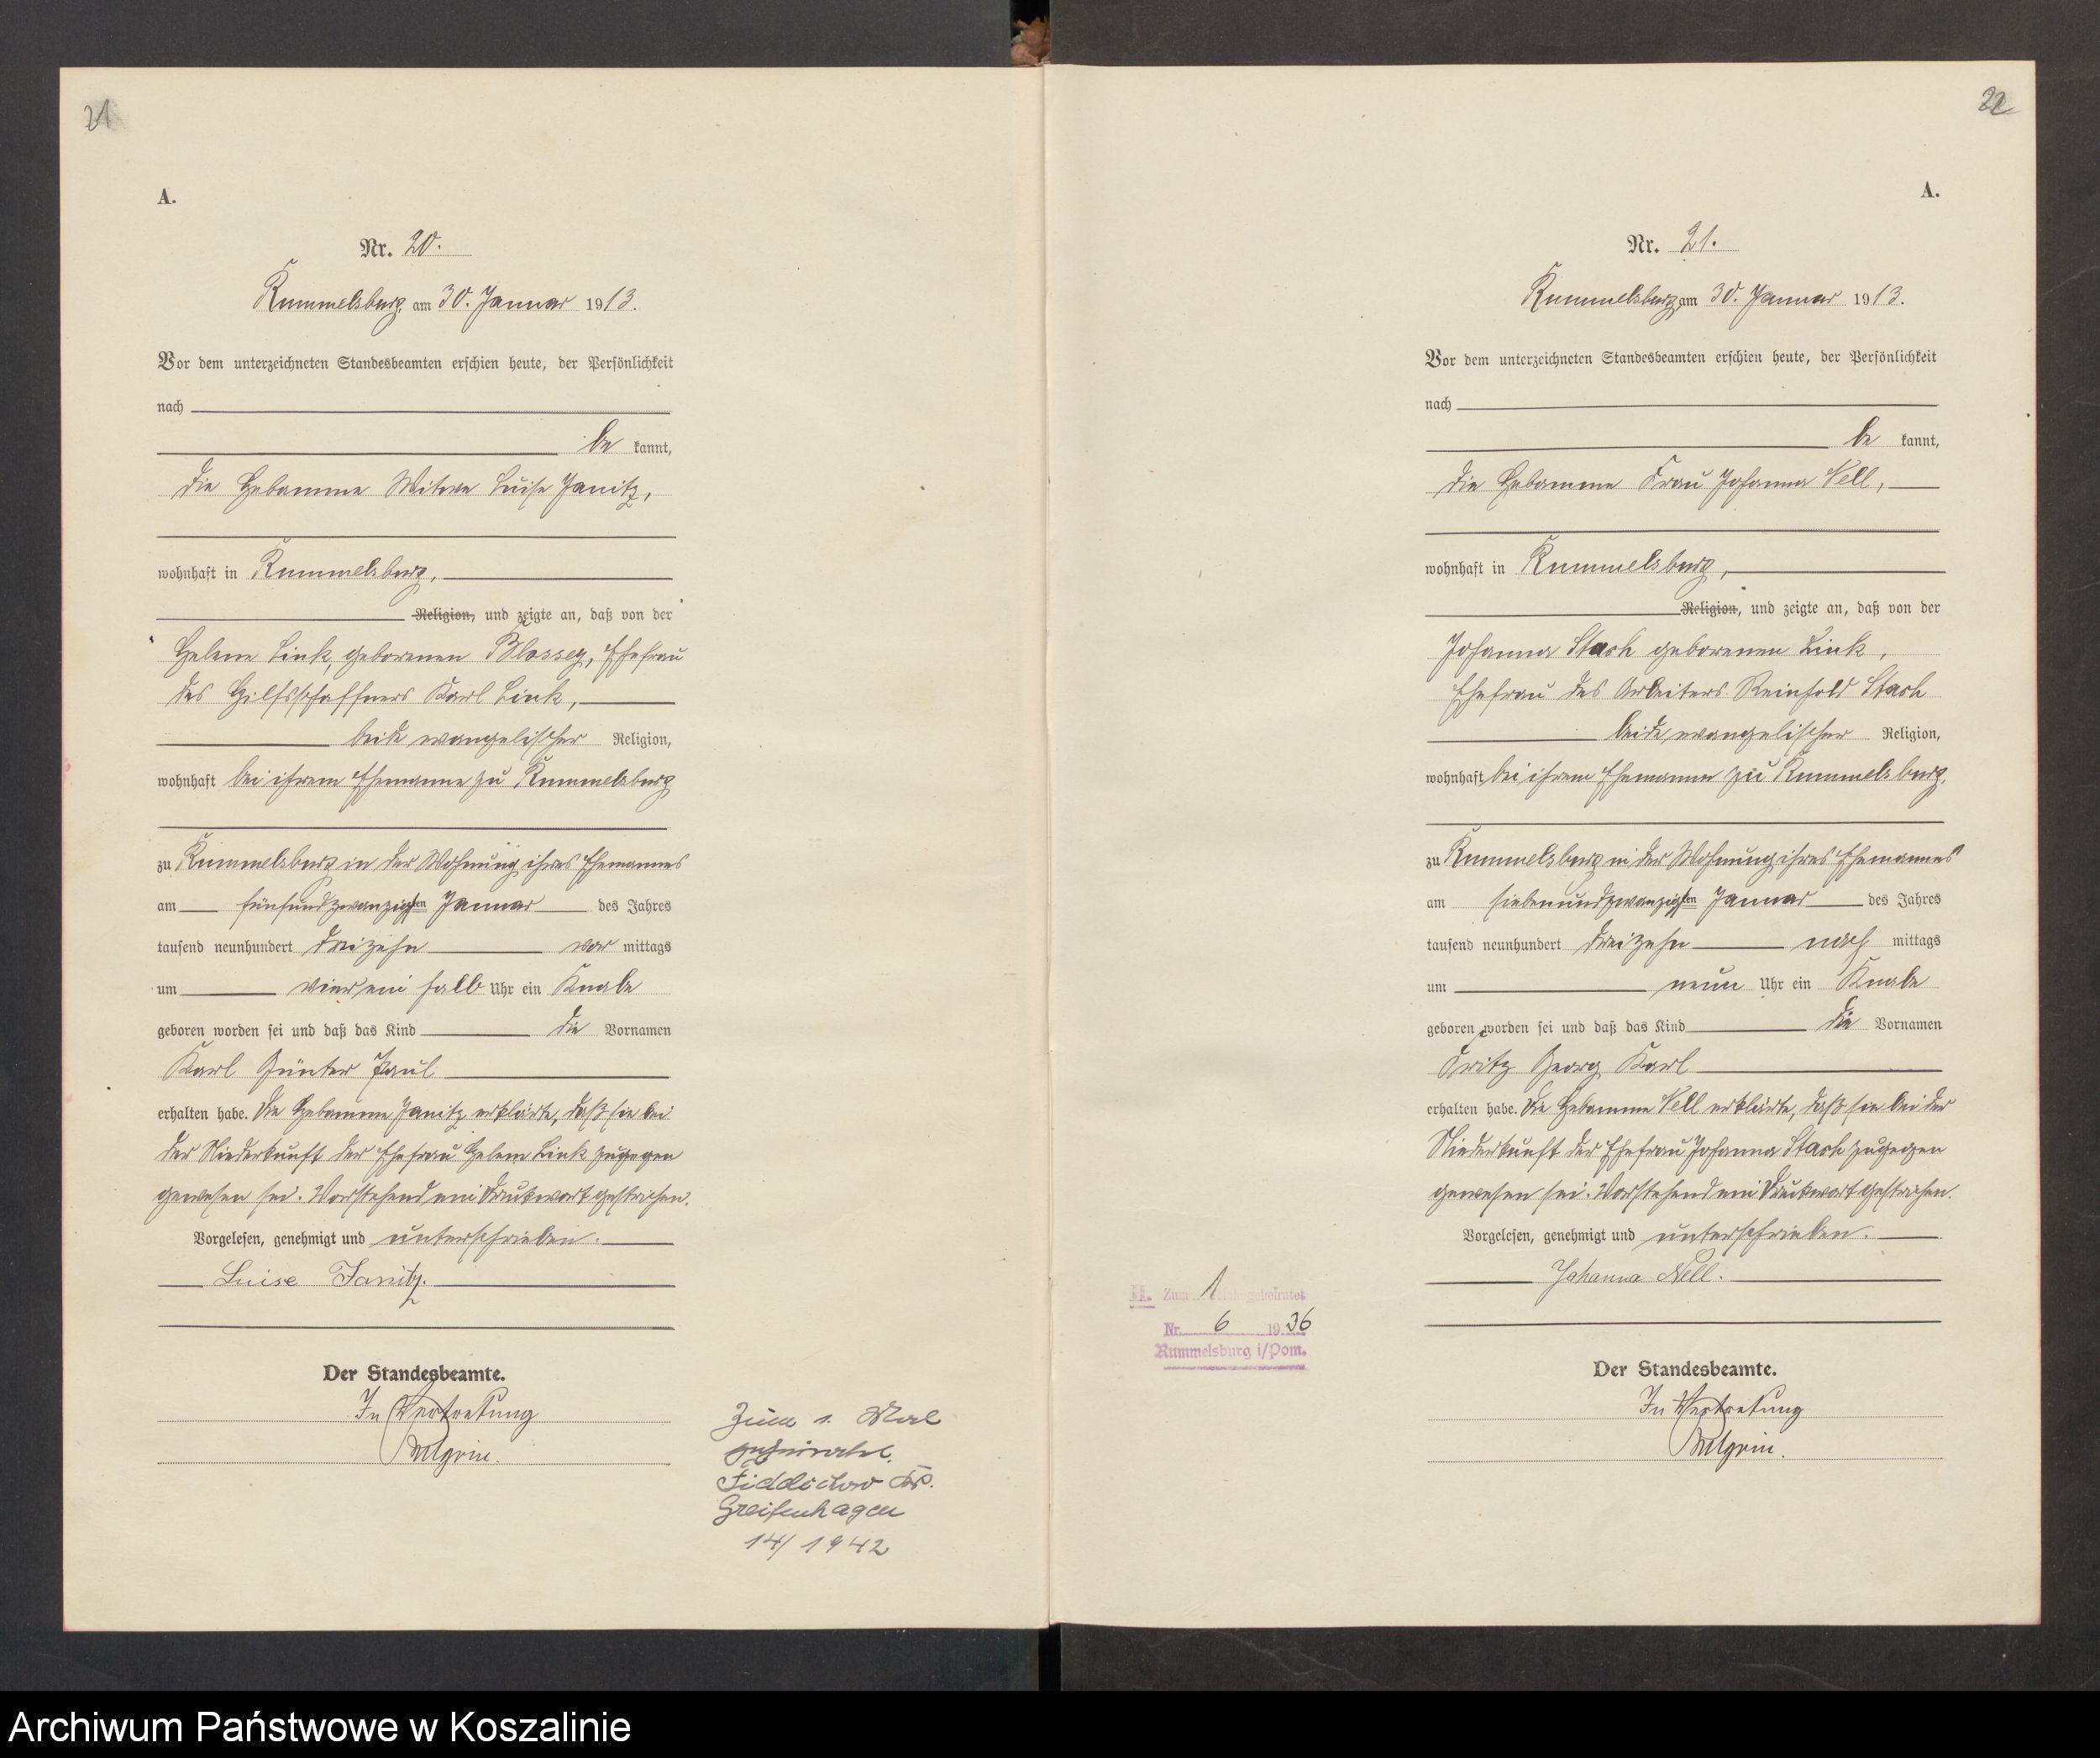 21
A.
Nr. 20.
Rummelsburg, am 30. Januar 1913.
Vor dem unterzeichneten Standesbeamten erschien heute, der Persönlichkeit
nach
be kannt,
die Hebamme Witwe Luise Janitz,
wohnhaft in Rummelsburg,
Religion, und zeigte an, daß von der
Helene Link, geborenen Blossey, Ehefrau
des Hilfsschaffners Karl Link,
beide evangelischer Religion,
wohnhaft bei ihrem Ehemanne zu Rummelsburg
zu Rummelsburg in der Wohnung ihres Ehemannes
am fünfundzwanzigsten Januar des Jahres
tausend neunhundert dreizehn vor mittags
um vier ein halb Uhr ein Knabe
geboren worden sei und daß das Kind die Vornamen
Karl Günter Paul
erhalten habe. Die Hebamme Janitz erklärte, daß sie bei
der Niederkunft der Ehefrau Helene Link zugegen
gewesen sei. Vorstehend ein Druckwort gestrichen.
Vorgelesen, genehmigt und unterschrieben.
Luise Janitz.
Der Standesbeamte.
In Vertretung
Zum 1. Mal
geheiratet
Fiddichow Kr.
Greifenhagen
14/1942
22
A.
Nr. 21.
Rummelsburg am 30. Januar 1913.
Vor dem unterzeichneten Standesbeamten erschien heute, der Persönlichkeit
nach
be kannt,
die Hebamme Frau Johanna Nell,
wohnhaft in Rummelsburg,
Religion, und zeigte an, daß von der
Johanna Stach geborenen Link,
Ehefrau des Arbeiters Reinhold Stach
beide evangelischer Religion,
wohnhaft bei ihrem Ehemanne zu Rummelsburg,
zu Rummelsburg in der Wohnung ihres Ehemannes
am siebenundzwanzigsten Januar des Jahres
tausend neunhundert dreizehn nach mittags
um neun Uhr ein Knabe
geboren worden sei und daß das Kind die Vornamen
Fritz Georg Karl
erhalten habe. Die Hebamme Nell erklärte, daß sie bei der
Niederkunft der Ehefrau Johanna Stach zugegen
gewesen sei. Vorstehend ein Druckwort gestrichen.
Vorgelesen, genehmigt und unterschrieben.
Johanna Nell.
H. Zum 1 geheiratet
Nr. 6 1936
Rummelsburg i/Pom.
Der Standesbeamte.
In Vertretung
Archiwum Państwowe w Koszalinie